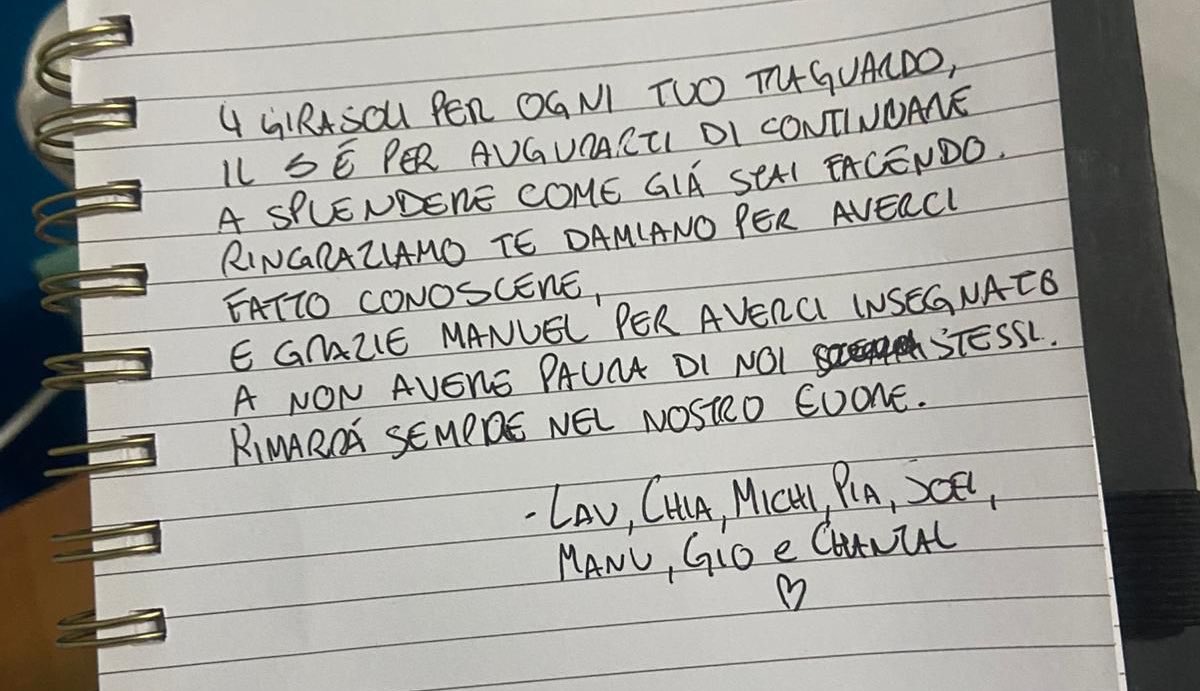 4 GIRASOLI PER OGNI TUO TRAGUARDO,
IL 5 É PER AUGURARTI DI CONTINUARE
A SPLENDERE COME GIÁ STAI FACENDO.
RINGRAZIAMO TE DAMIANO PER AVERCI
FATTO CONOSCERE,
E GRAZIE MANUEL PER AVERCI INSEGNATO
A NON AVERE PAURA DI NOI STESSI.
RIMARRÁ SEMPRE NEL NOSTRO CUORE.
- LAU, CHIA, MICHI, PIA, JOEL,
MANU, GIO e CHANTAL
♡